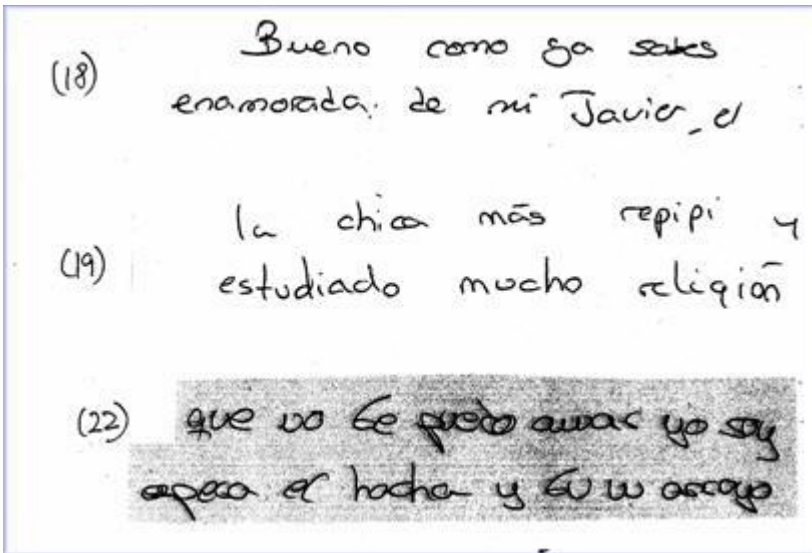 (18) Bueno como ya sabes
enamorada. de mi Javier, el
(19) la chica más repipi y
estudiado mucho religión
(22) que no te puedo amar yo soy
el hacha y tu un arroyo